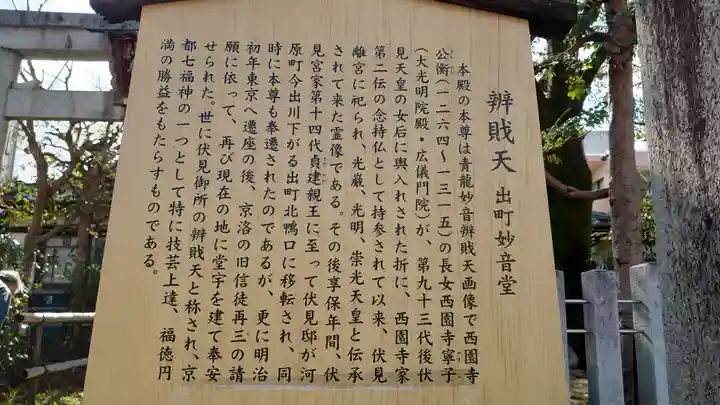 辨戝天 出町妙音堂
本殿の本尊は青龍妙音辨戝天画像で西園寺
公衡(一二六四〜一三一五)の長女西園寺寧子
(大光明院殿・広儀門院)が、第九十三代後伏
見天皇の女后に輿入れされた折に、西園寺家
第二伝の念持仏として持参されて以来、伏見
離宮に祀られ、光巌、光明、崇光天皇と伝承
されて来た霊像である。その後享保年間、伏
見宮家第十四代貞建親王に至って伏見邸が河
原町今出川下がる出町北鴨口に移転され、同
時に本尊も奉遷されたのであるが、更に明治
初年東京へ遷座の後、京洛の旧信徒再三の請
願に依って、再び現在の地に堂宇を建て奉安
せられた。世に伏見御所の辨戝天と称され、京
都七福神の一つとして特に技芸上達、福徳円
満の勝益をもたらすものである。